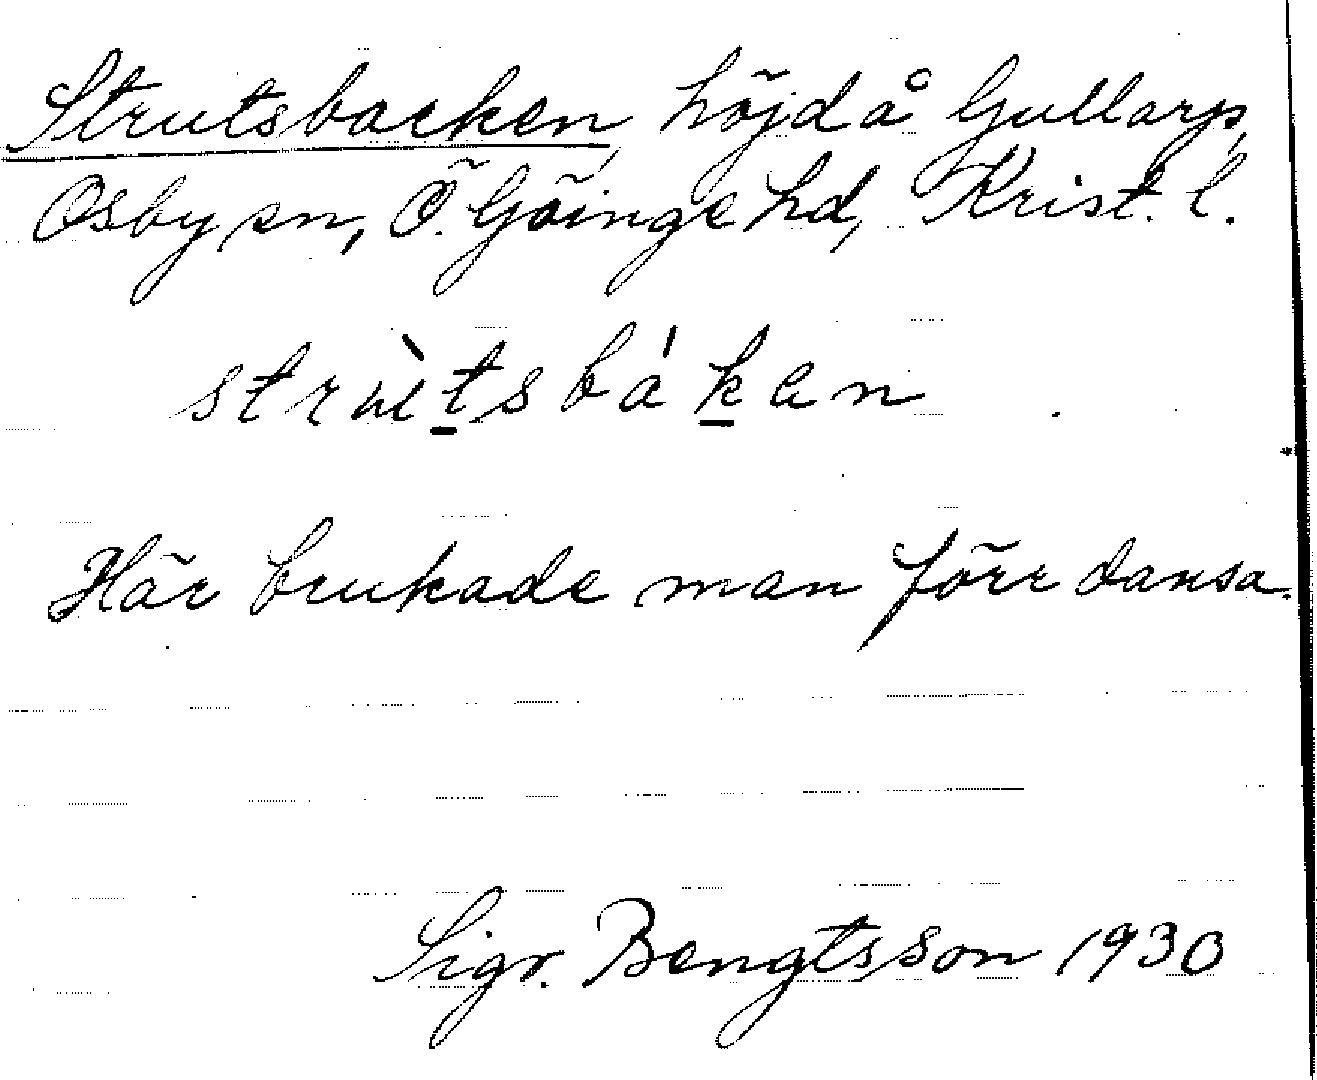 Strutsbacken, höjd å Gullarp,
Osby sn, Ö. Göinge hd, Krist. l.
strùt̲sbák̲en
Här brukade man förr dansa.
Sigr. Bengtsson 1930